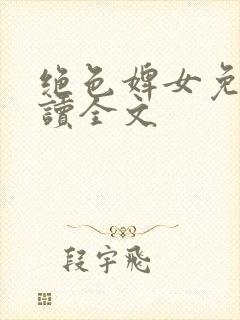 絕色婢女免
讀全文
段宇飛